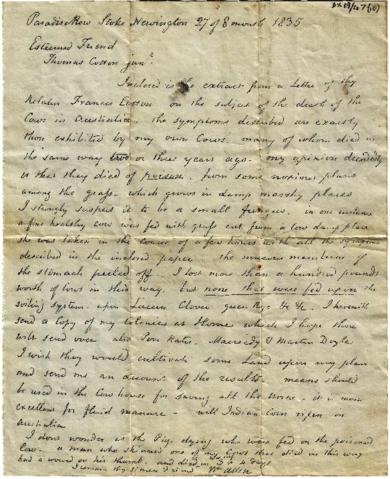 Paradise Row Stoke Newington 27 of 8 month 1835
Esteemed Friend
Thomas Cotton junr.
Inclosed is the extract from a Letter of thy
Relation Frances Cotton on the subject of the death of the
Cows in Australia. the symptoms described are exactly
those exhibited by my own Cows, many of whom died in
the same way two or three years ago. my opinion decidedly
is that they died of from some noxious plant
among the grass which grows in damp places
I strongly suspect it to be a small fungus. in one instance
a fine healthy cow was fed with grass cut from a low damp place
she was taken in the course of a few hours with all the symptoms
described in the inclosed paper. the mucous membrane of
the stomach peeled off. I lost more than a hundred pounds
worth of Cows in this way, but none that were fed upon the
soiling system upon Lucern Clover green Rye &c &c. I herewith
send a copy of my Colonies at Home which I hope thou
wilt send over also
I wish they would cultivate some Land upon my plan
and send me an account of the result. means should
be used in the Cow house for saving all the urine. it is most
excellent for fluid manure – will Indian Corn ripen in
Australia
I don't wonder at the Pigs dying who were fed on the poisoned
Cow. a man who skinned one of my Cows that died in this way
had a wound on his thumb, and died in 3 or 4 days
I remain thy sincere friend Wm Allen